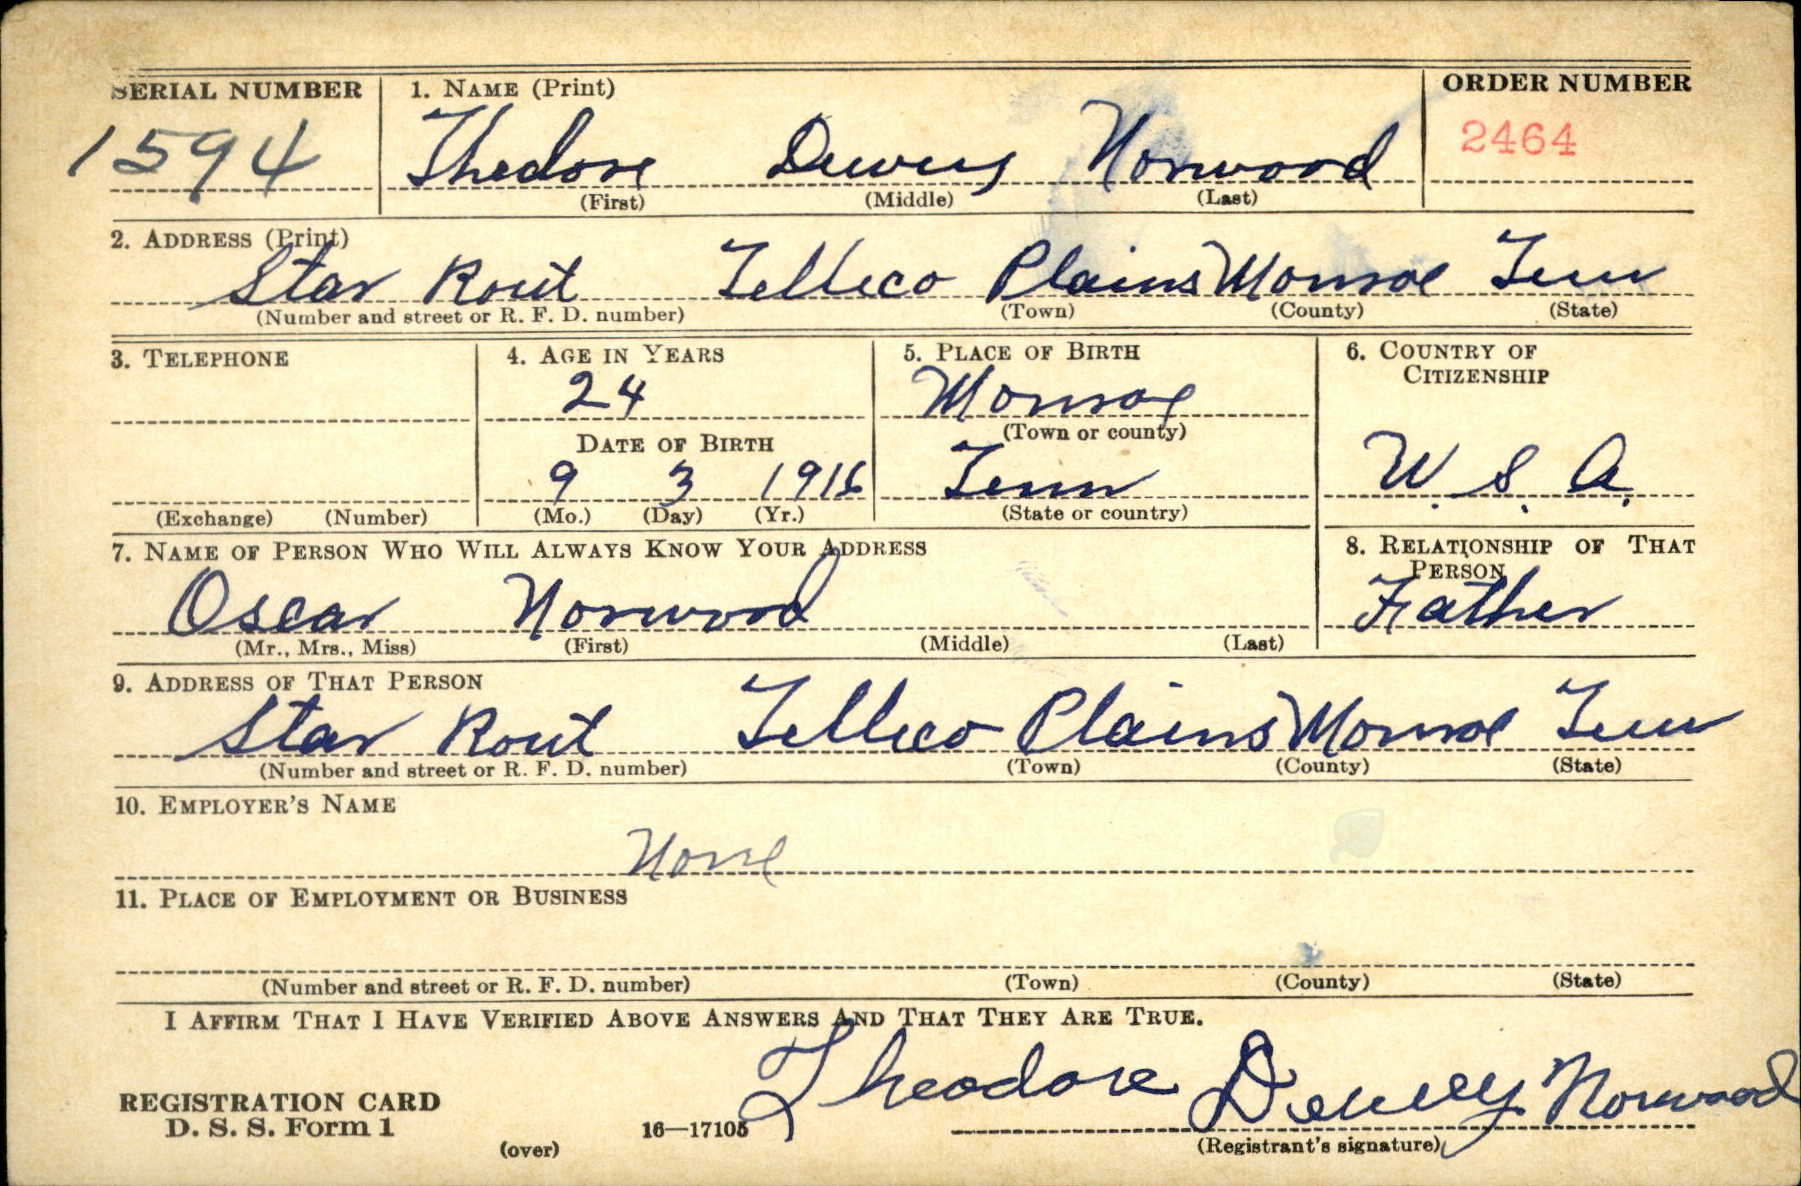 SERIAL NUMBER 1. NAME (Print) ORDER NUMBER
1594 Thedore Dewey Norwood 2464
(First) (Middle) (Last)
2. ADDRESS (Print)
Star Rout Telleco Plains Monroe Tenn
(Number and street or R. F. D. number) (Town) (County) (State)
3. TELEPHONE 4. AGE IN YEARS 5. PLACE OF BIRTH 6. COUNTRY OF CITIZENSHIP
24 Monroe
DATE OF BIRTH (Town or county)
9 3 1916 Tenn U. S. A.
(Exchange) (Number) (Mo.) (Day) (Yr.) (State or country)
7. NAME OF PERSON WHO WILL ALWAYS KNOW YOUR ADDRESS 8. RELATIONSHIP OF THAT PERSON
Oscar Norwood Father
(Mr., Mrs., Miss) (First) (Middle) (Last)
9. ADDRESS OF THAT PERSON
Star Rout Telleco Plains Monroe Tenn
(Number and street or R. F. D. number) (Town) (County) (State)
10. EMPLOYER'S NAME
None
11. PLACE OF EMPLOYMENT OR BUSINESS
(Number and street or R. F. D. number) (Town) (County) (State)
I AFFIRM THAT I HAVE VERIFIED ABOVE ANSWERS AND THAT THEY ARE TRUE.
Theodore Dewey Norwood
REGISTRATION CARD
D. S. S. Form 1 16—17105
(over) (Registrant's signature)